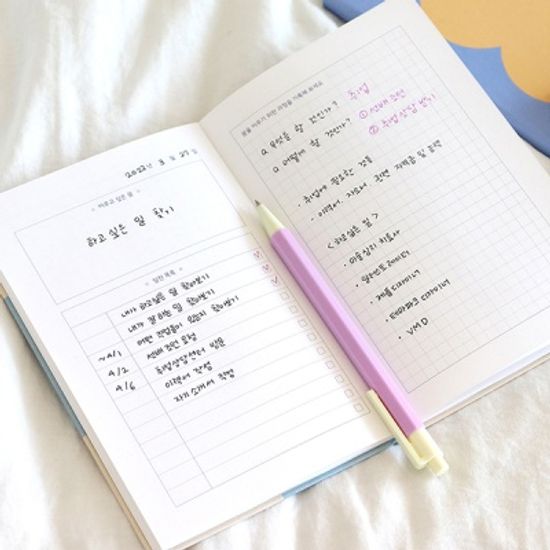 2022년 3월 27일
< 이루고 싶은 꿈 >
하고싶은 일 찾기
< 실천 목록 >
내가 하고싶은 일 찾아보기 v
내가 잘 하는 일 찾아보기 v
어떤 직업들이 있는지 찾아보기 v
~4/1 선배 조언 요청
4/2 취업상담센터 방문
4/6 이력서 작성
자기소개서 작성
꿈을 이루기 위한 과정을 기록해 보세요
Q 무엇을 할 것인가? 취업
Q 어떻게 할 것인가? ① 선배 조언
② 취업상담 받기
· 취업에 필요한 것들
· 이력서, 자소서, 관련 자격증 및 능력
<하고싶은 일>
· 미술심리 치료사
· 일러스트레이터
· 제품 디자이너
· 테마파크 디자이너
· VMD